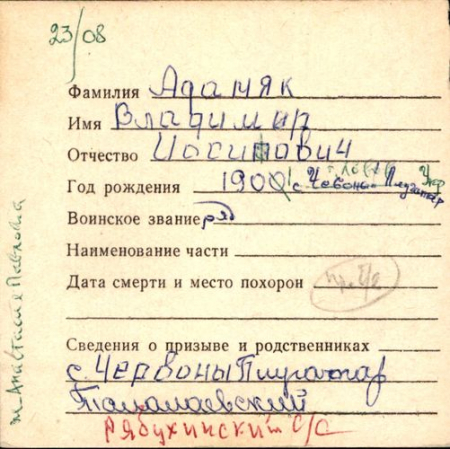 23/08
Фамилия Адамяк
Имя Владимир
Отчество Иосипович
Год рождения 1900
Воинское звание ряд
Наименование части
Дата смерти и место похорон
Сведения о призыве и родственниках
с. Червоны Плугатар
Рябухинский с/с
ж. Анастасия Павловна